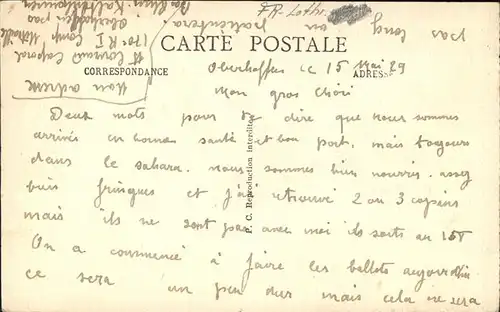 FR-Loth.
CARTE POSTALE
CORRESPONDANCE
ADRESSE
P. C. Reproduction Interdite
Oberhoffen le 15 Mai 29
Mon gros Chéri
Deux mots pour te dire que nous sommes
arrivés en bonne santé et bon port, mais toujours
dans le sahara. nous sommes bien nourris. assez
bien fringues et j'ai retrouvé 2 ou 3 copains
mais ils ne sont pas avec moi ils sont au 158
On a commencé à faire les ballots aujourd'hui
ce sera un peu dur mais cela ne sera
pas long on patientera
Mon adresse
Mr Caporal
170e R I Camp
Oberhoffen par
Bas Rhin